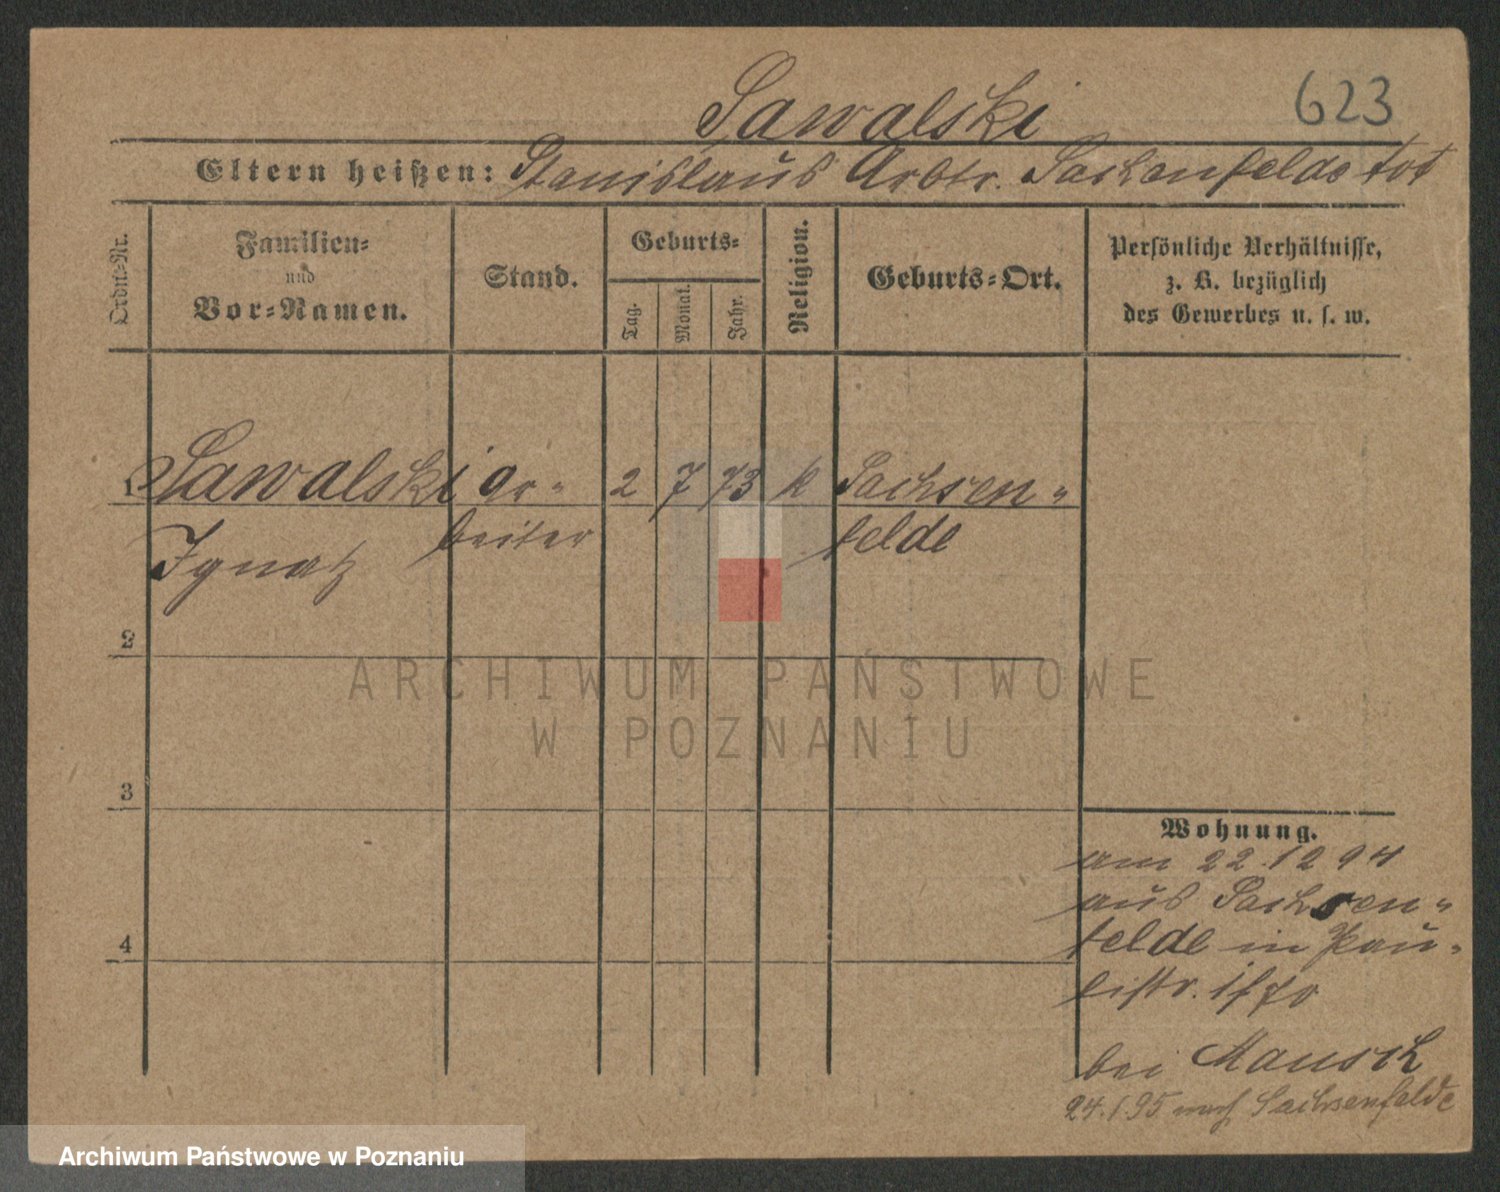 Sawalski
623
Eltern heißen: Stanislaus Arbtr. Sachsenfelde tot
Ordn=Nr.
Familien=
und
Vor=Namen.
Stand.
Geburts=
Tag.
Monat.
Jahr.
Religion.
Geburts=Ort.
Persönliche Verhältnisse,
z. B. bezüglich
des Gewerbes u. s. w.
1 Sawalski Ar- 2 7 73 k Sachsen-
Ignatz beiter felde
2
ARCHIWUM PAŃSTWOWE
W POZNANIU
3
4
Wohnung.
am 22.12 94
aus Sachsen-
felde in Pau-
listr.
bei Mausch
24.1 95 nach Sachsenfelde
Archiwum Państwowe w Poznaniu